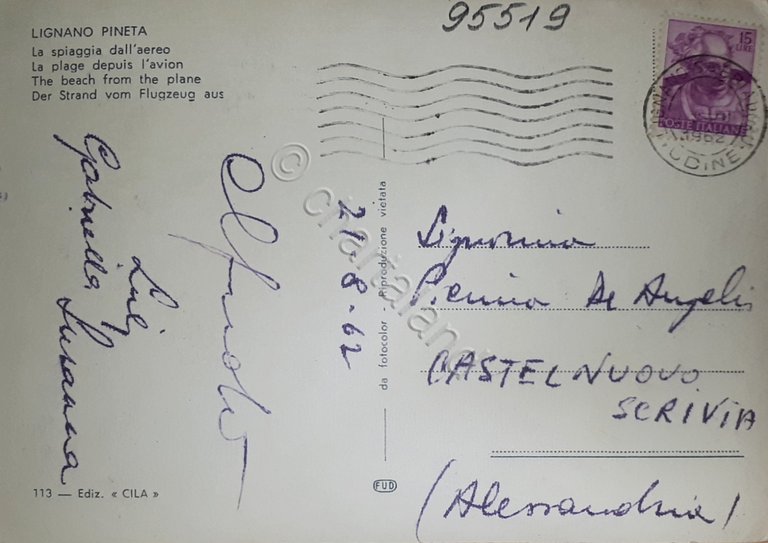 LIGNANO PINETA
La spiaggia dall'aereo
La plage depuis l'avion
The beach from the plane
Der Strand vom Flugzeug aus
95519
15
LIRE
POSTE ITALIANE
1962
UDINE
Gabriella
Luigi
Susanna
21-8-62
da fotocolor - Riproduzione vietata
Signorina
Pierina De Angelis
CASTELNUOVO
SCRIVIA
(Alessandria)
113 — Ediz. « CILA »
FUD